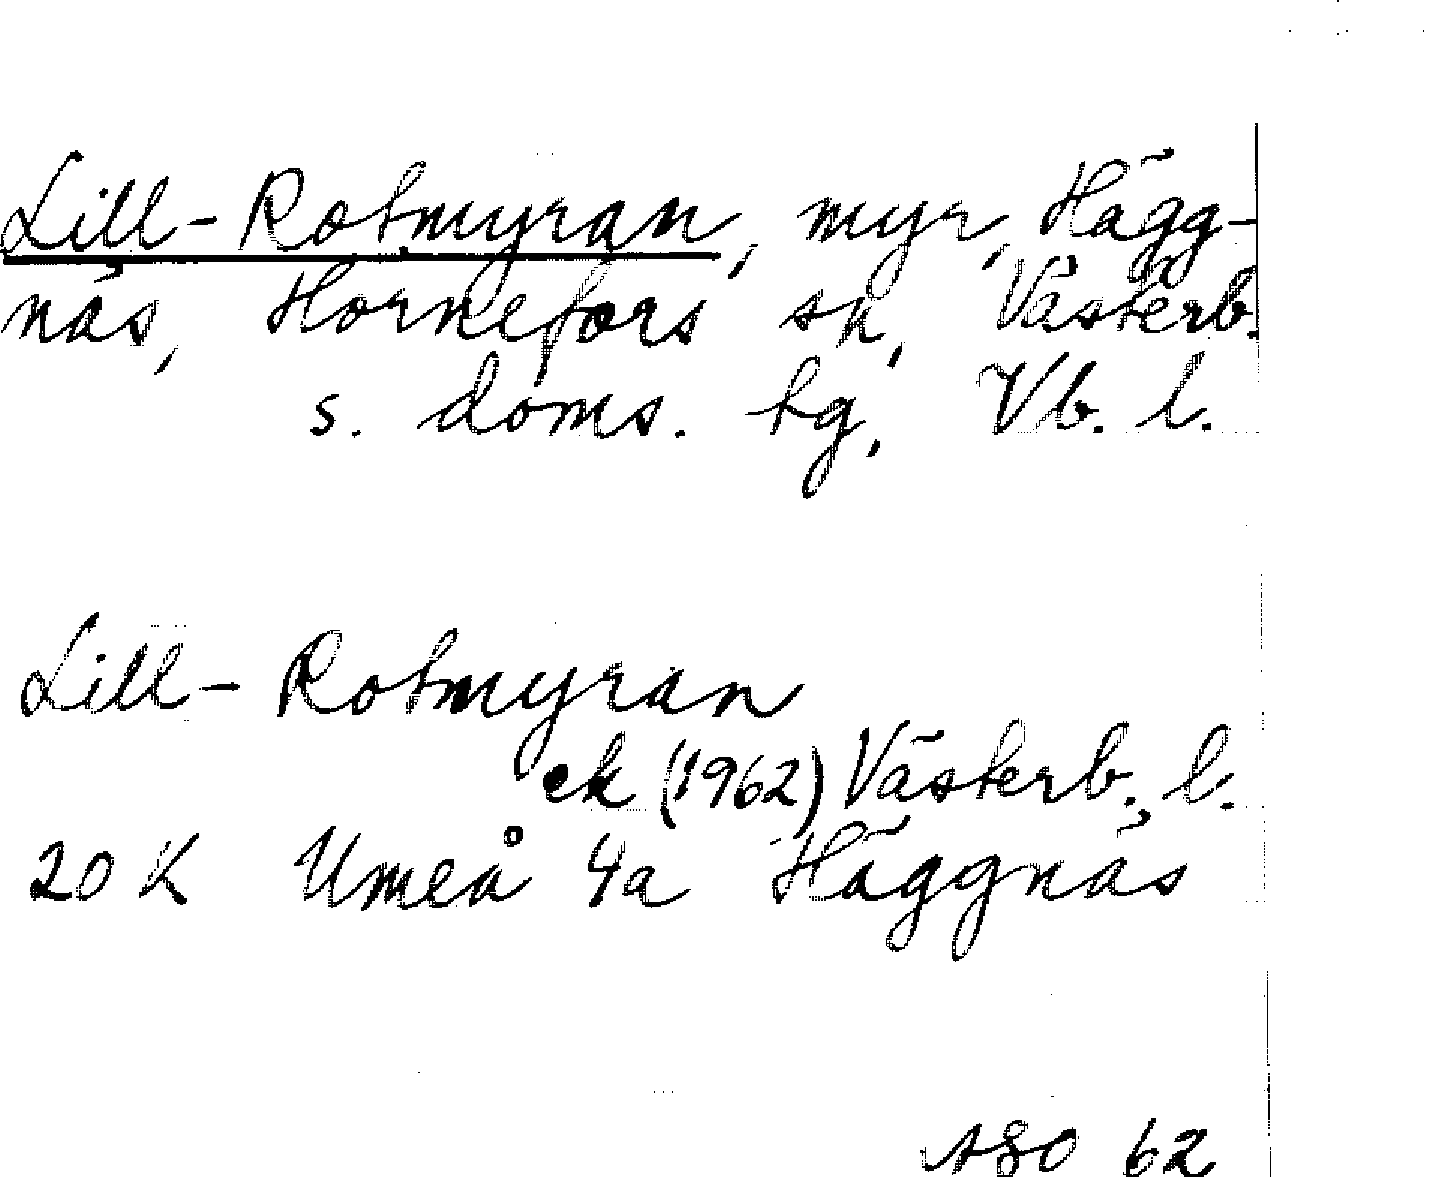 Lill-Rotmyran, myr, Hägg-
näs, Hörnefors sn, Västerb.
s. doms. tg, Vb. l.
Lill-Rotmyran
ek (1962) Västerb. l.
20 K Umeå 4a Häggnäs
ASO 62